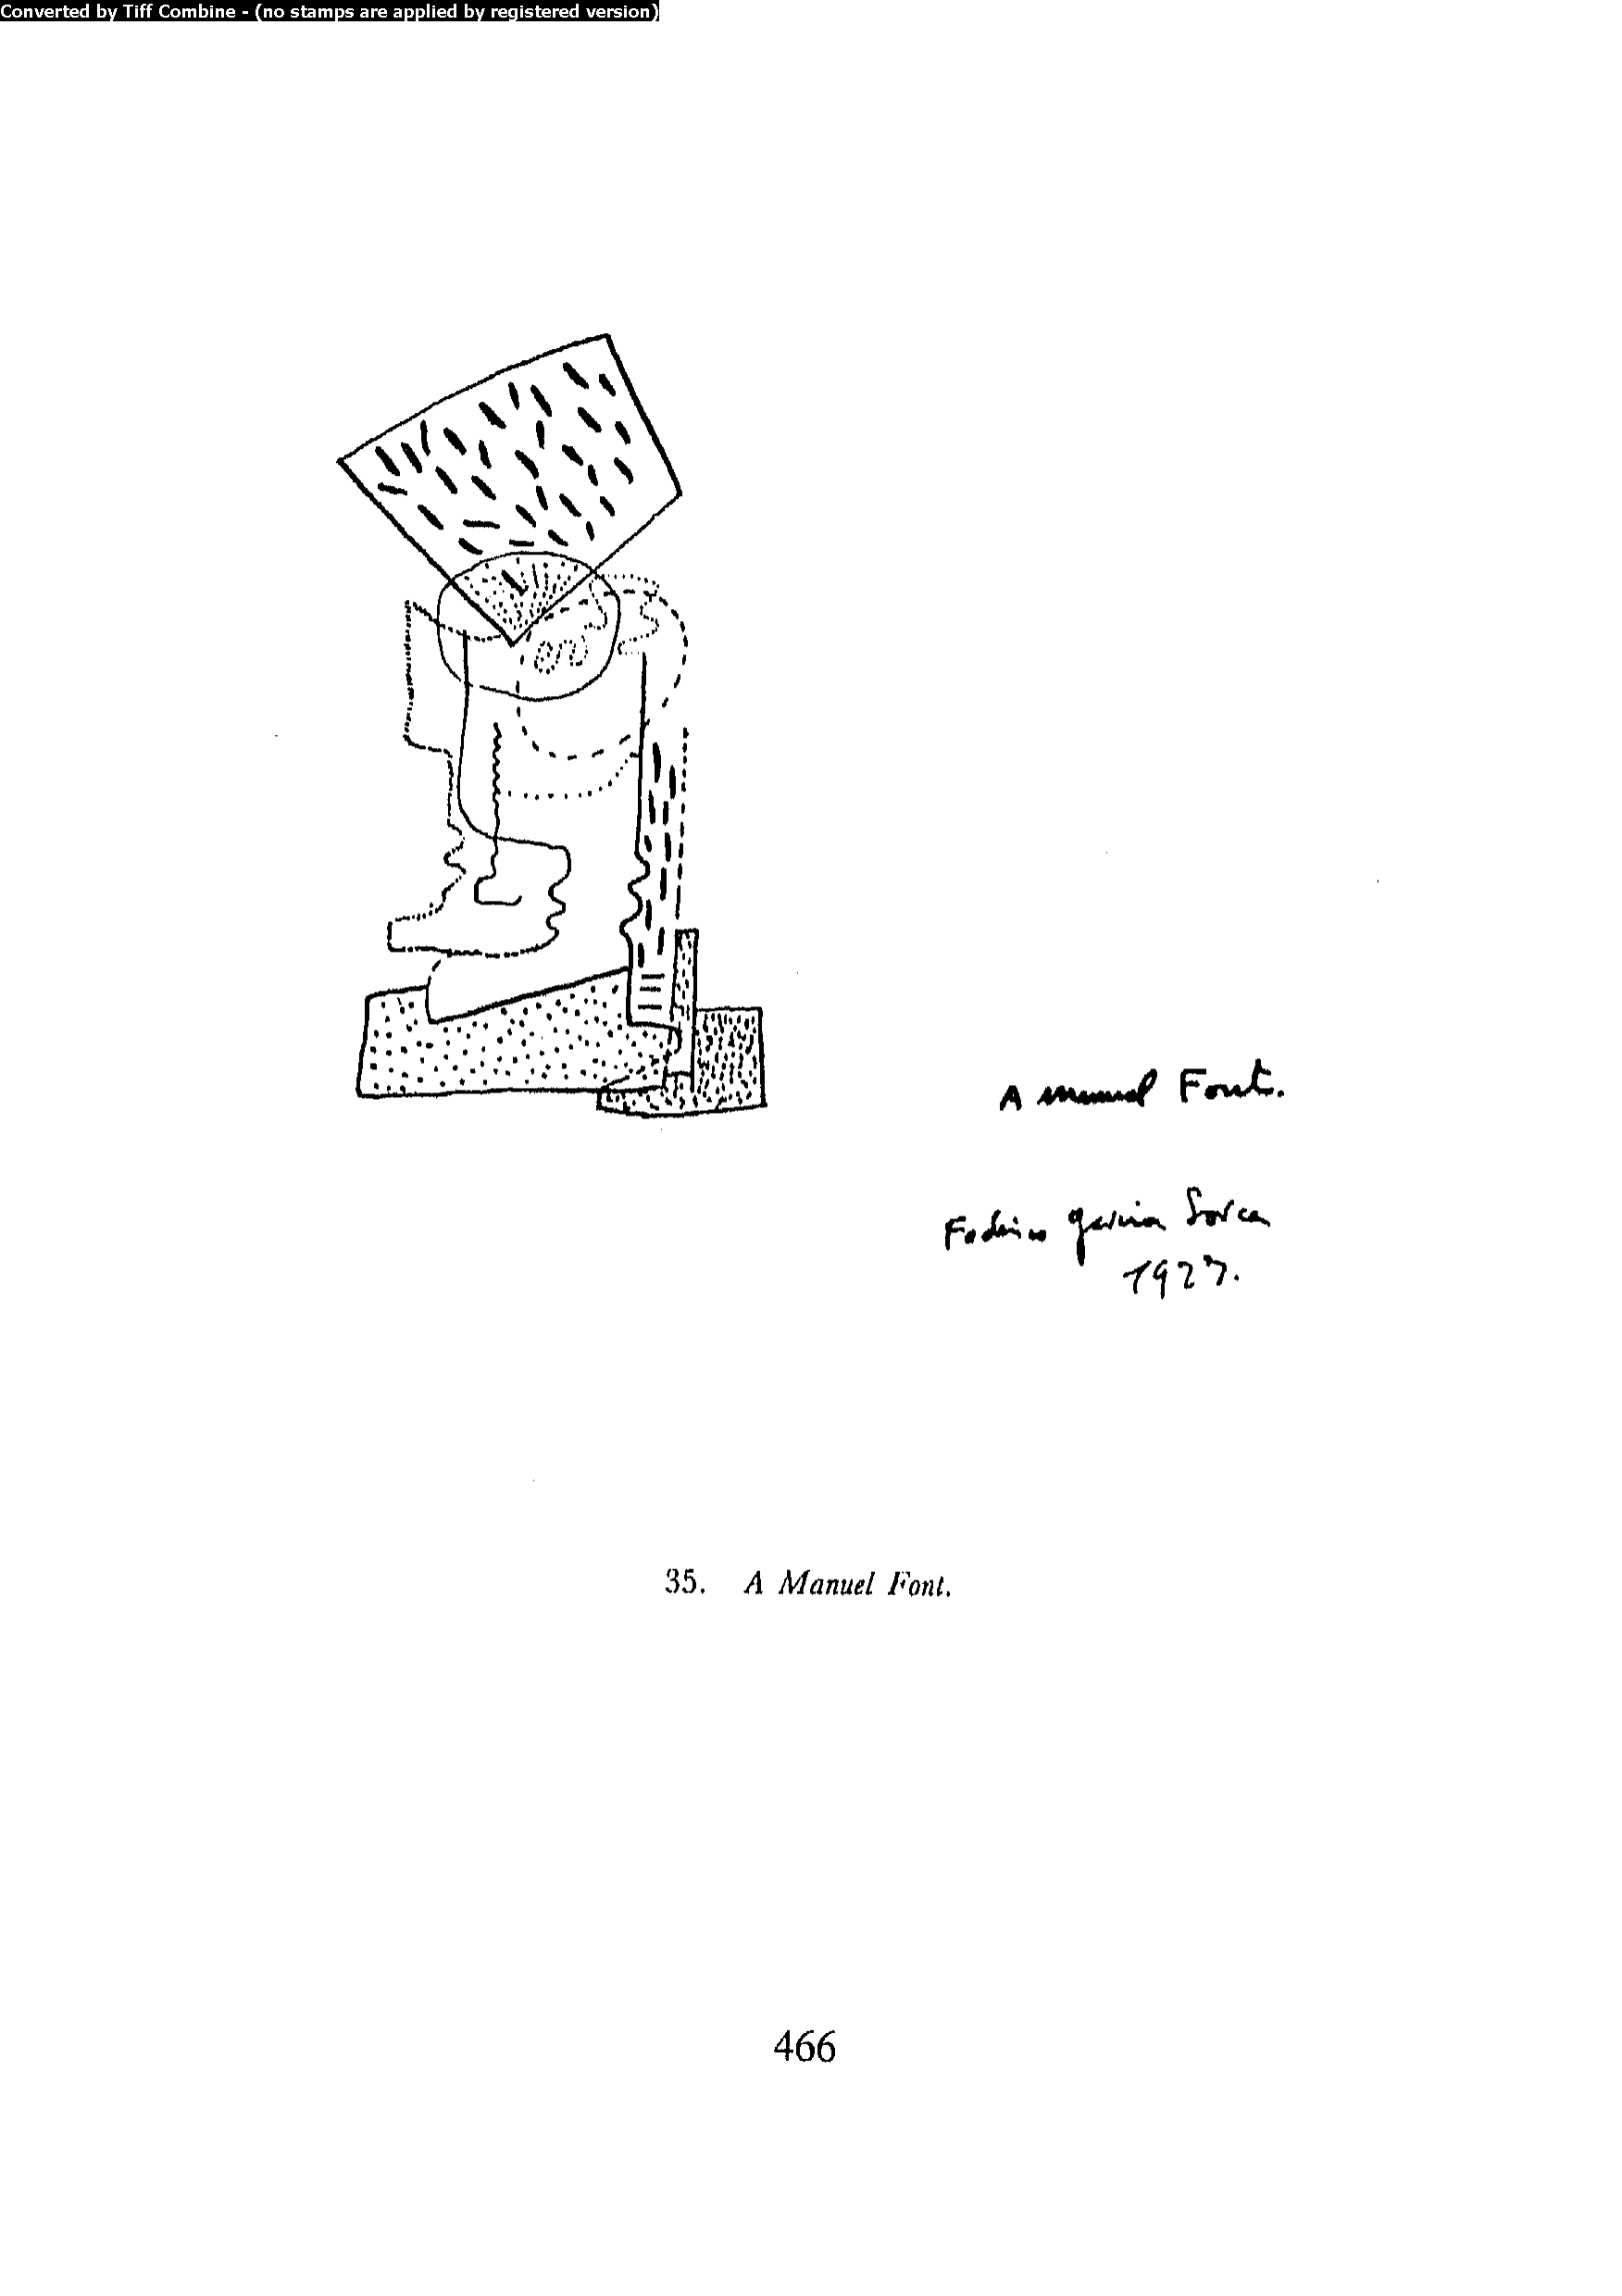 Converted by Tiff Combine - (no stamps are applied by registered version)
A Manuel Font.
Federico García Lorca
1927.
35. A Manuel Font.
466